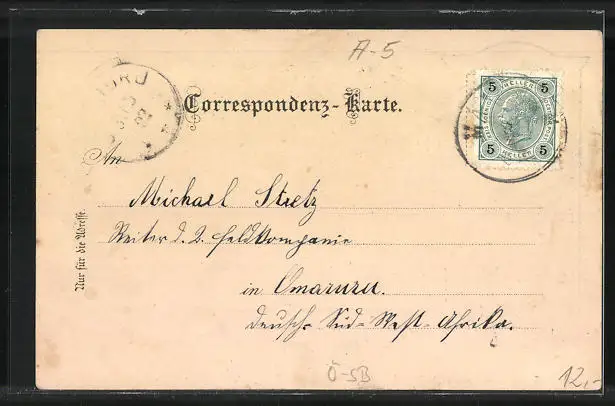 A-5
Correspondenz-Karte.
5 HELLER 5
5 HELLER 5
An
Michael Stretz
Reiter d. 2. Feldkompanie
in Omaruru.
Deutsch-Süd-West-Afrika.
Nur für die Adresse
Ö-SB
12,-